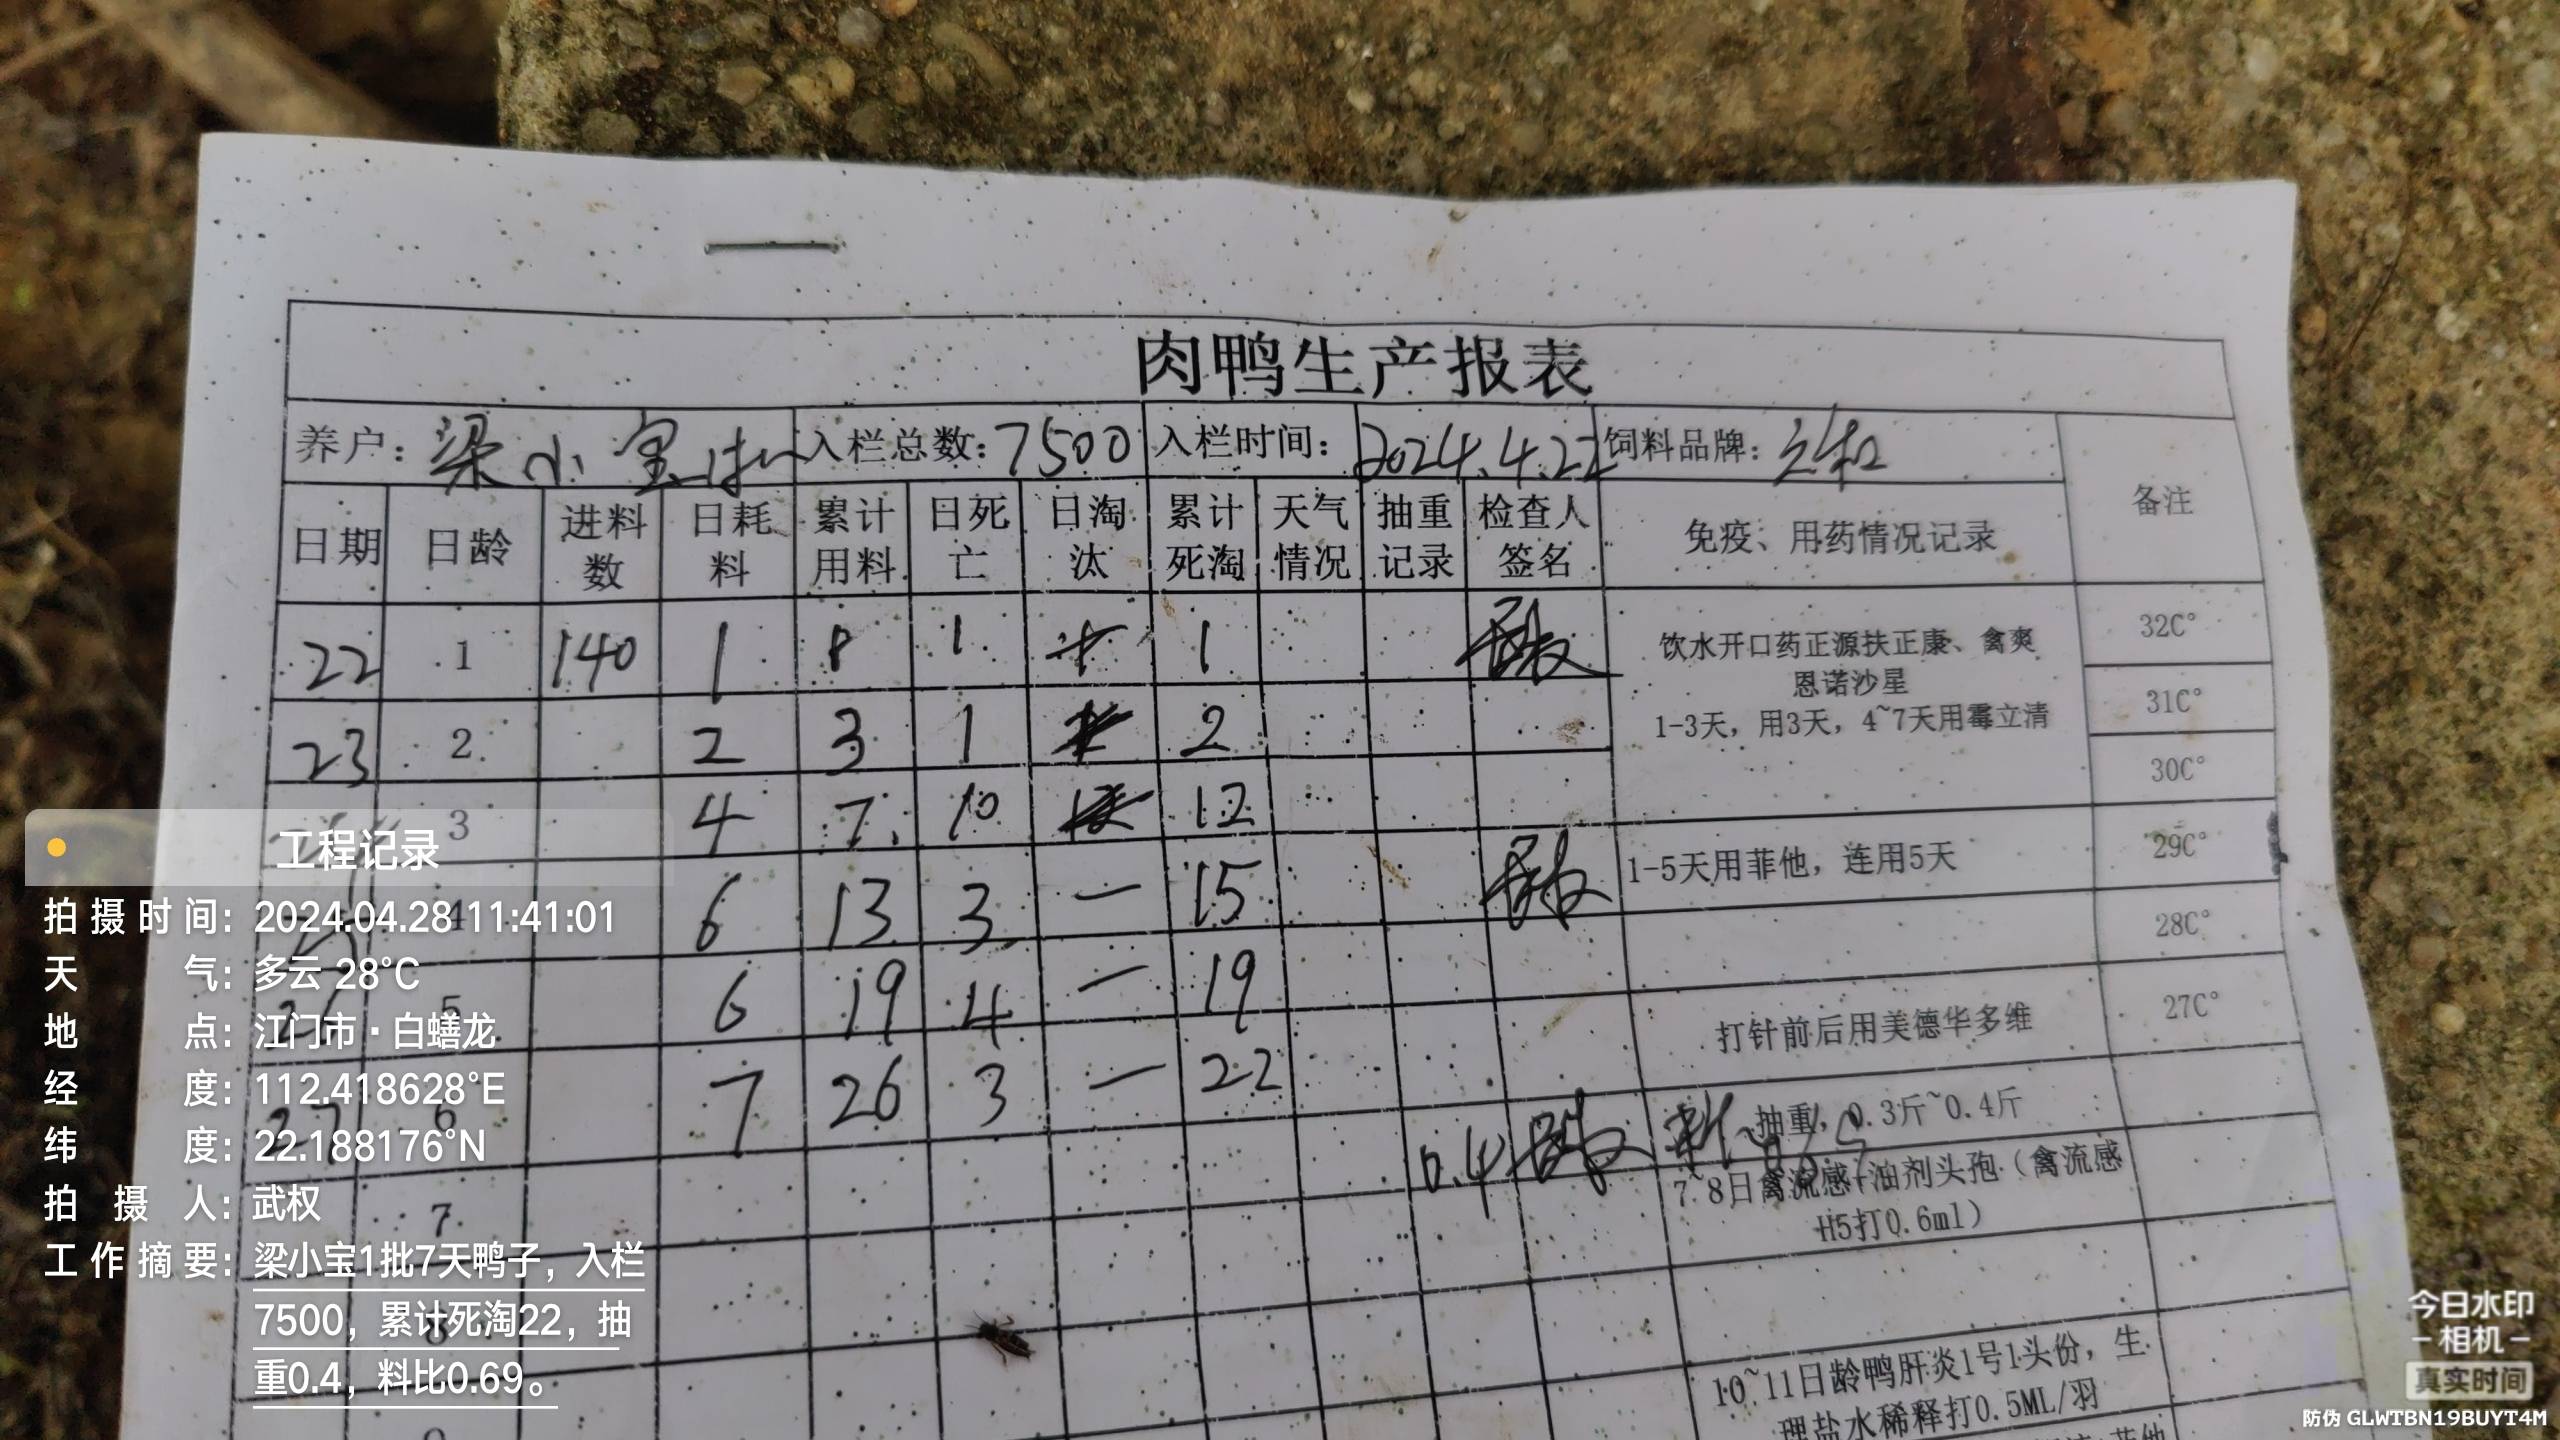 肉鸭生产报表
养户：梁小宝 入栏总数：7500 入栏时间：2024.4.22 饲料品牌： 备注
日期 日龄 进料数 日耗料 累计用料 日死亡 日淘汰 累计死淘 天气情况 抽重记录 检查人签名 免疫、用药情况记录
22 1 140 1 1 1 饮水开口药正源扶正康、禽爽 32C°
恩诺沙星
23 2 2 3 1 2 1-3天，用3天，4~7天用霉立清 31C°
3 4 7 10 12 30C°
4 6 13 3 一 15 1-5天用菲他，连用5天 29C°
5 6 19 4 一 19 28C°
27 6 7 26 3 一 22 打针前后用美德华多维 27C°
7 0.4 抽重，0.3斤~0.4斤
7~8日禽流感+油剂头孢（禽流感
H5打0.6ml）
8
9 10~11日龄鸭肝炎1号1头份，生
理盐水稀释打0.5ML/羽
工程记录
拍摄时间：2024.04.28 11:41:01
天气：多云 28°C
地点：江门市·白蟮龙
经度：112.418628°E
纬度：22.188176°N
拍摄人：武权
工作摘要：梁小宝1批7天鸭子，入栏
7500，累计死淘22，抽
重0.4，料比0.69。
今日水印
-相机-
真实时间
防伪 GLWTBN19BUYT4M